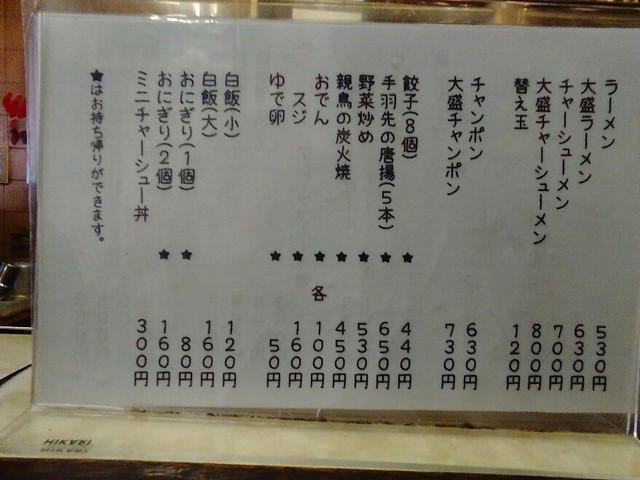 ラーメン 530円
大盛ラーメン 630円
チャーシューメン 700円
大盛チャーシューメン 800円
替え玉 120円
チャンポン 630円
大盛チャンポン 730円
餃子(8個) ★ 440円
手羽先の唐揚(5本) ★ 650円
野菜炒め ★ 530円
親鳥の炭火焼 ★ 450円
おでん ★ 各 100円
スジ ★ 160円
ゆで卵 ★ 50円
白飯(小) 120円
白飯(大) 160円
おにぎり(1個) ★ 80円
おにぎり(2個) ★ 160円
ミニチャーシュー丼 300円
★はお持ち帰りができます。
HIKARI